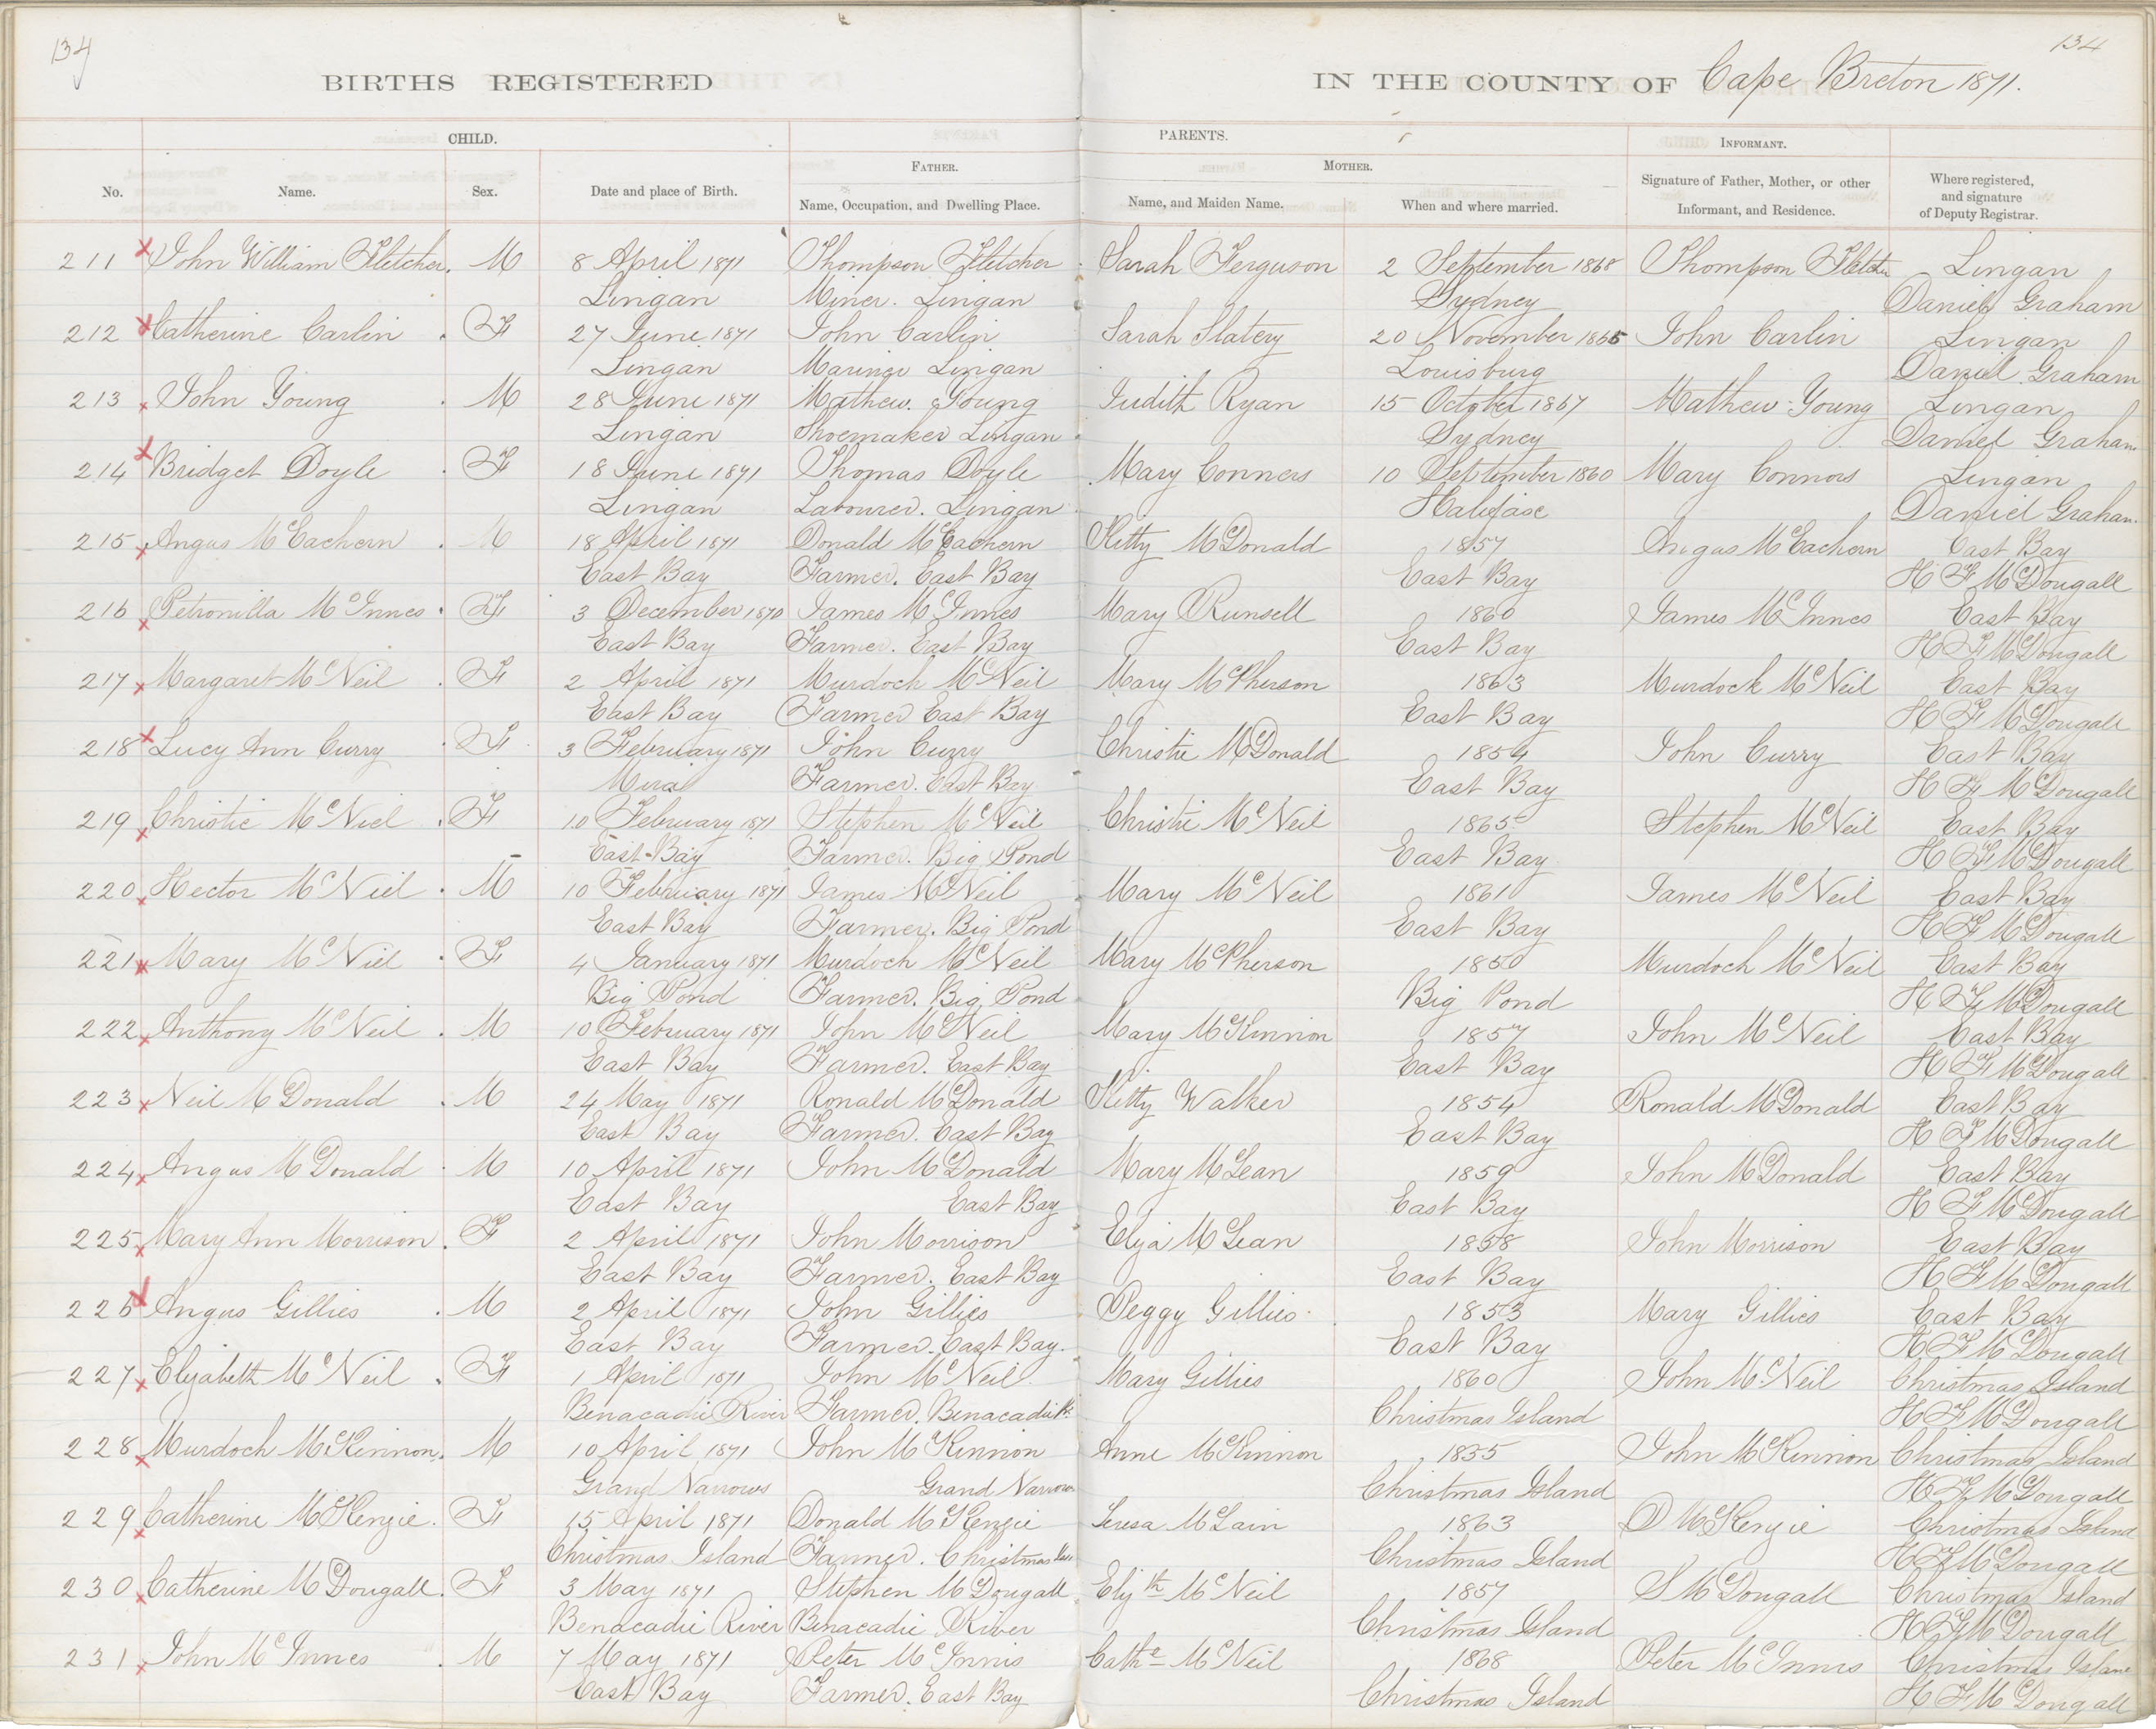 134
134
BIRTHS REGISTERED
IN THE COUNTY OF Cape Breton 1871.
CHILD.
PARENTS.
INFORMANT.
FATHER.
MOTHER.
No.
Name.
Sex.
Date and place of Birth.
Name, Occupation, and Dwelling Place.
Name, and Maiden Name.
When and where married.
Signature of Father, Mother, or other
Informant, and Residence.
Where registered,
and signature
of Deputy Registrar.
211 John William Fletcher. M 8 April 1871 Thompson Fletcher Sarah Ferguson 2 September 1868 Thompson Fletcher Lingan
Lingan Miner. Lingan Sydney Daniel Graham
212 Catherine Carlin F 27 June 1871 John Carlin Sarah Slatery 20 November 1865 John Carlin Lingan
Lingan Lingan Louisburg Daniel Graham
213 John Young M 28 June 1871 Mathew. Young Judith Ryan 15 October 1867 Mathew Young Lingan
Lingan Shoemaker Lingan Sydney Daniel Graham
214 Bridget Doyle F 18 June 1871 Thomas Doyle Mary Conners 10 September 1860 Mary Connors Lingan
Lingan Labourer. Lingan Halifax Daniel Graham
215 Angus McEachern M 18 April 1871 Donald McEachern Kitty McDonald 1857 Angus McEachern East Bay
East Bay Farmer. East Bay East Bay H F McDougall
216 Petronilla McInnes F 3 December 1870 James McInnes Mary Runsell 1860 James McInnes East Bay
East Bay Farmer. East Bay East Bay H F McDougall
217 Margaret McNeil F 2 April 1871 Murdoch McNeil Mary McPherson 1863 Murdock McNeil East Bay
East Bay Farmer East Bay East Bay H F McDougall
218 Lucy Ann Curry F 3 February 1871 John Curry Christie McDonald 1854 John Curry East Bay
Mira Farmer. East Bay East Bay H F McDougall
219 Christie McNiel F 10 February 1871 Stephen McNeil Christie McNeil 1865 Stephen McNeil East Bay
East Bay Farmer. Big Pond East Bay H F McDougall
220 Hector McNiel M 10 February 1871 James McNeil Mary McNeil 1861 James McNeil East Bay
East Bay Farmer. Big Pond East Bay H F McDougall
221 Mary McNiel F 4 January 1871 Murdoch McNeil Mary McPherson 1850 Murdoch McNeil East Bay
Big Pond Farmer. Big Pond Big Pond H F McDougall
222 Anthony McNeil M 10 February 1871 John McNeil Mary McKinnon 1857 John McNeil East Bay
East Bay Farmer. East Bay East Bay H F McDougall
223 Neil McDonald M 24 May 1871 Ronald McDonald Kitty Walker 1854 Ronald McDonald East Bay
East Bay Farmer. East Bay East Bay H F McDougall
224 Angus McDonald M 10 April 1871 John McDonald Mary McLean 1859 John McDonald East Bay
East Bay East Bay East Bay H F McDougall
225 Mary Ann Morrison F 2 April 1871 John Morrison Eliza McLean 1858 John Morrison East Bay
East Bay Farmer. East Bay East Bay H F McDougall
226 Angus Gillies M 2 April 1871 John Gillies Peggy Gillies 1853 Mary Gillies East Bay
East Bay Farmer. East Bay. East Bay H F McDougall
227 Elizabeth McNeil F 1 April 1871 John McNeil Mary Gillies 1860 John McNeil Christmas Island
Benacadie River Farmer. Benacadie R. Christmas Island H F McDougall
228 Murdoch McKinnon. M 10 April 1871 John McKinnon Anne McKinnon 1855 John McKinnon Christmas Island
Grand Narrows Grand Narrows Christmas Island H F McDougall
229 Catherine McKenzie. F 15 April 1871 Donald McKenzie Teresa McLain 1863 D McKenzie Christmas Island
Christmas Island Farmer. Christmas Christmas Island H F McDougall
230 Catherine McDougall. F 3 May 1871 Stephen McDougall Elizth McNeil 1857 S McDougall Christmas Island
Benacadie River Benacadie River Christmas Island H F McDougall
231 John McInnes M 7 May 1871 Peter McInnis Cathe McNeil 1868 Peter McInnis Christmas Island
East Bay Farmer. East Bay Christmas Island H F McDougall